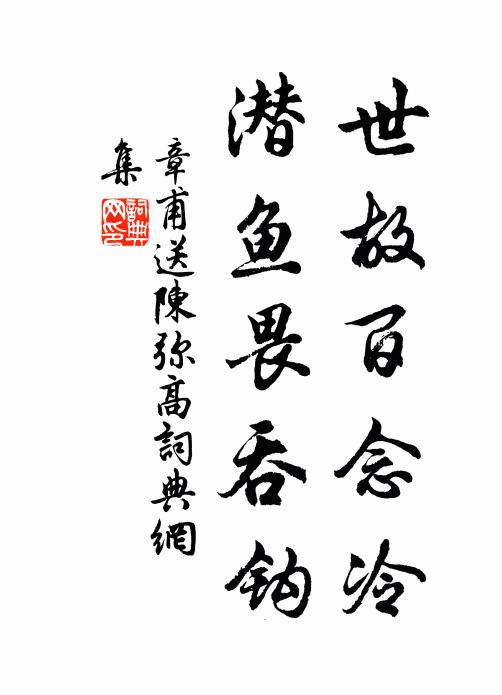 世故百念冷
潜鱼畏吞钩
章甫送陳弥高詞典網
集
詞典网印